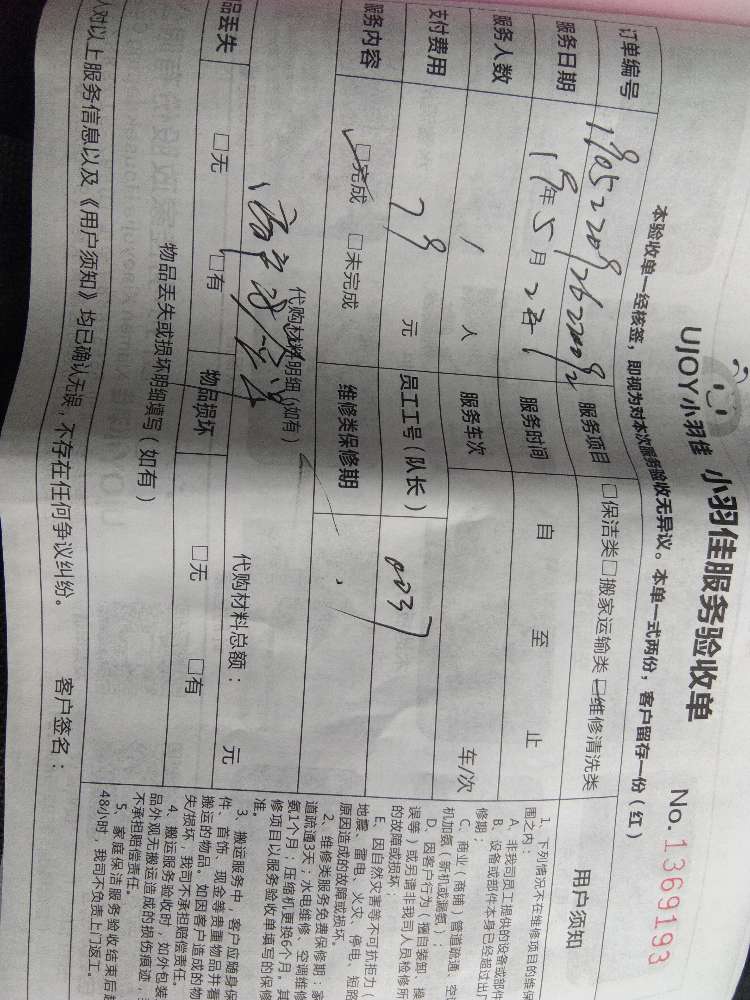 UJOY小羽佳 小羽佳服务验收单 No.1369193
本验收单一经核签，即视为对本次服务验收无异议。本单一式两份，客户留存一份（红）
订单编号
服务项目 □保洁类 □搬家运输类 □维修清洗类
服务日期 19年5月
服务时间 自 至 止
服务人数 1 人 服务车次 车/次
支付费用 79 元 员工工号（队长） 0037
服务内容 □完成 □未完成 维修类保修期
代购材料明细（如有） 代购材料总额： 元
品丢失 □无 □有 物品损坏 □无 □有
物品丢失或损坏明细填写（如有）
人对以上服务信息以及《用户须知》均已确认无误，不存在任何争议纠纷。 客户签名：
用户须知
1、下列情况不在维修项目的维保
围之内：
A、非我司员工提供的设备或部件
B、设备或部件本身已经超过出厂
修期；
C、商业（商铺）管道疏通、空
机加氨（新机或漏氨）；
D、因客户行为（擅自装卸、操
误等）或另请非我司人员检修所
的故障或损坏；
E、因自然灾害等不可抗拒力（
地震、雷电、火灾、停电、短路
原因造成的故障或损坏。
2、维修类服务免费保修期：家
道疏通3天；水电维修、空调维修
氨1个月；压缩机更换6个月。其
修项目以服务验收单填写的保修
准。
3、搬运服务中，客户应随身保
件、首饰、现金等贵重物品并看
搬运的物品。如因客户造成的物
失/损坏，我司不承担赔偿责任。
4、搬运服务验收时，如外包装
品外观无搬运造成的损伤痕迹，
不承担赔偿责任。
5、家庭保洁服务验收结束后超
48小时，我司不负责上门返工。